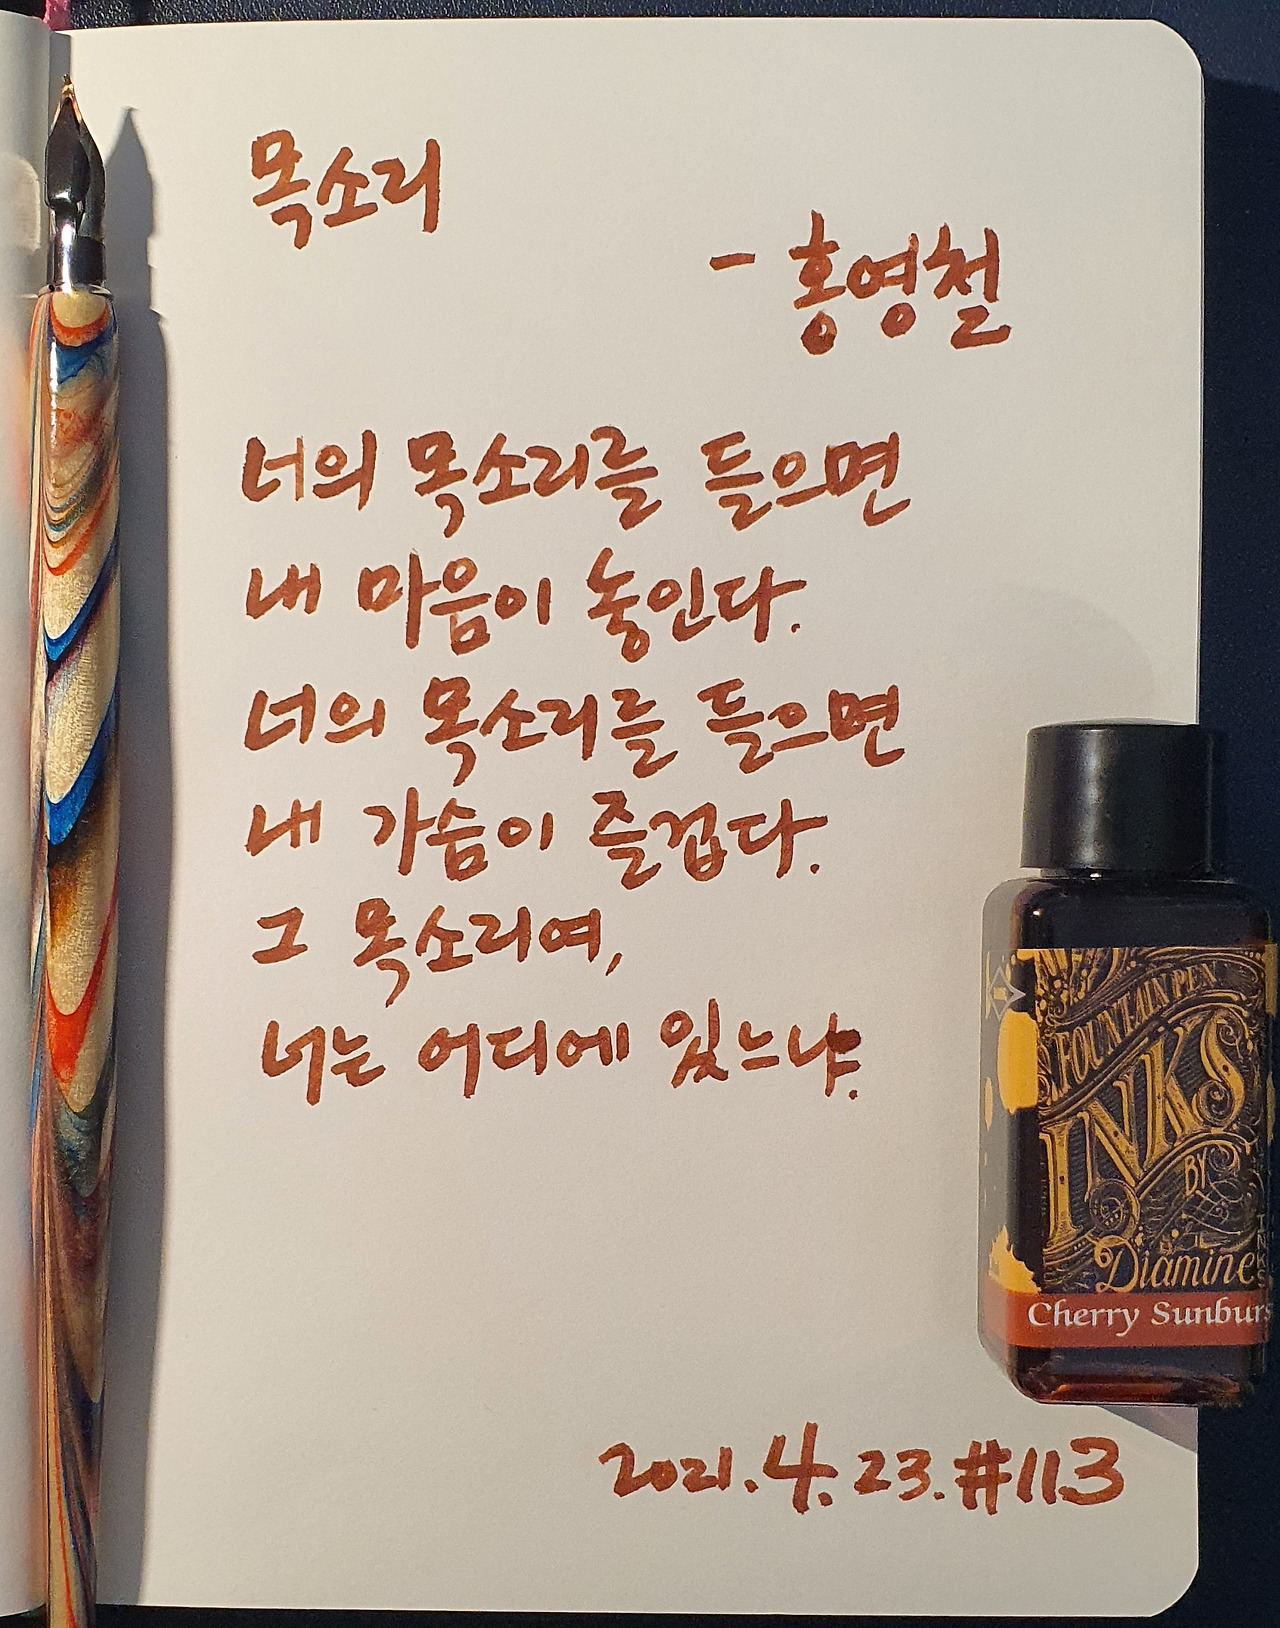 목소리
- 홍영철
너의 목소리를 들으면
내 마음이 놓인다.
너의 목소리를 들으면
내 가슴이 즐겁다.
그 목소리여,
너는 어디에 있느냐.
FOUNTAIN PEN
INKS
BY
Diamine
INKS
Cherry Sunburs
2021.4.23.#113